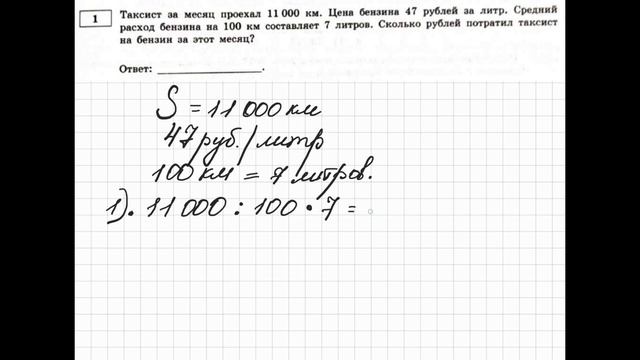 1
Таксист за месяц проехал 11 000 км. Цена бензина 47 рублей за литр. Средний
расход бензина на 100 км составляет 7 литров. Сколько рублей потратил таксист
на бензин за этот месяц?
Ответ: ____________________.
S = 11 000 км
47 руб./литр
100 км = 7 литров.
1). 11 000 : 100 • 7 =